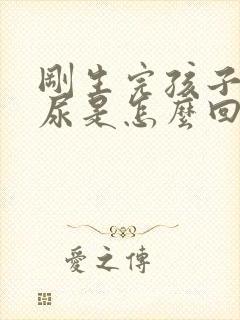 剛生完孩子
尿是怎麼回
愛之傳